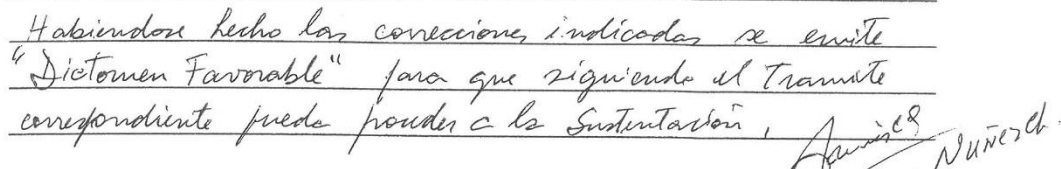 Habiendose hecho las correcciones indicadas se emite
"Dictomen Favorable" para que siguiendo el Tramite
correspondiente pueda proceder a la Sustentación,
Nuñez Ch.